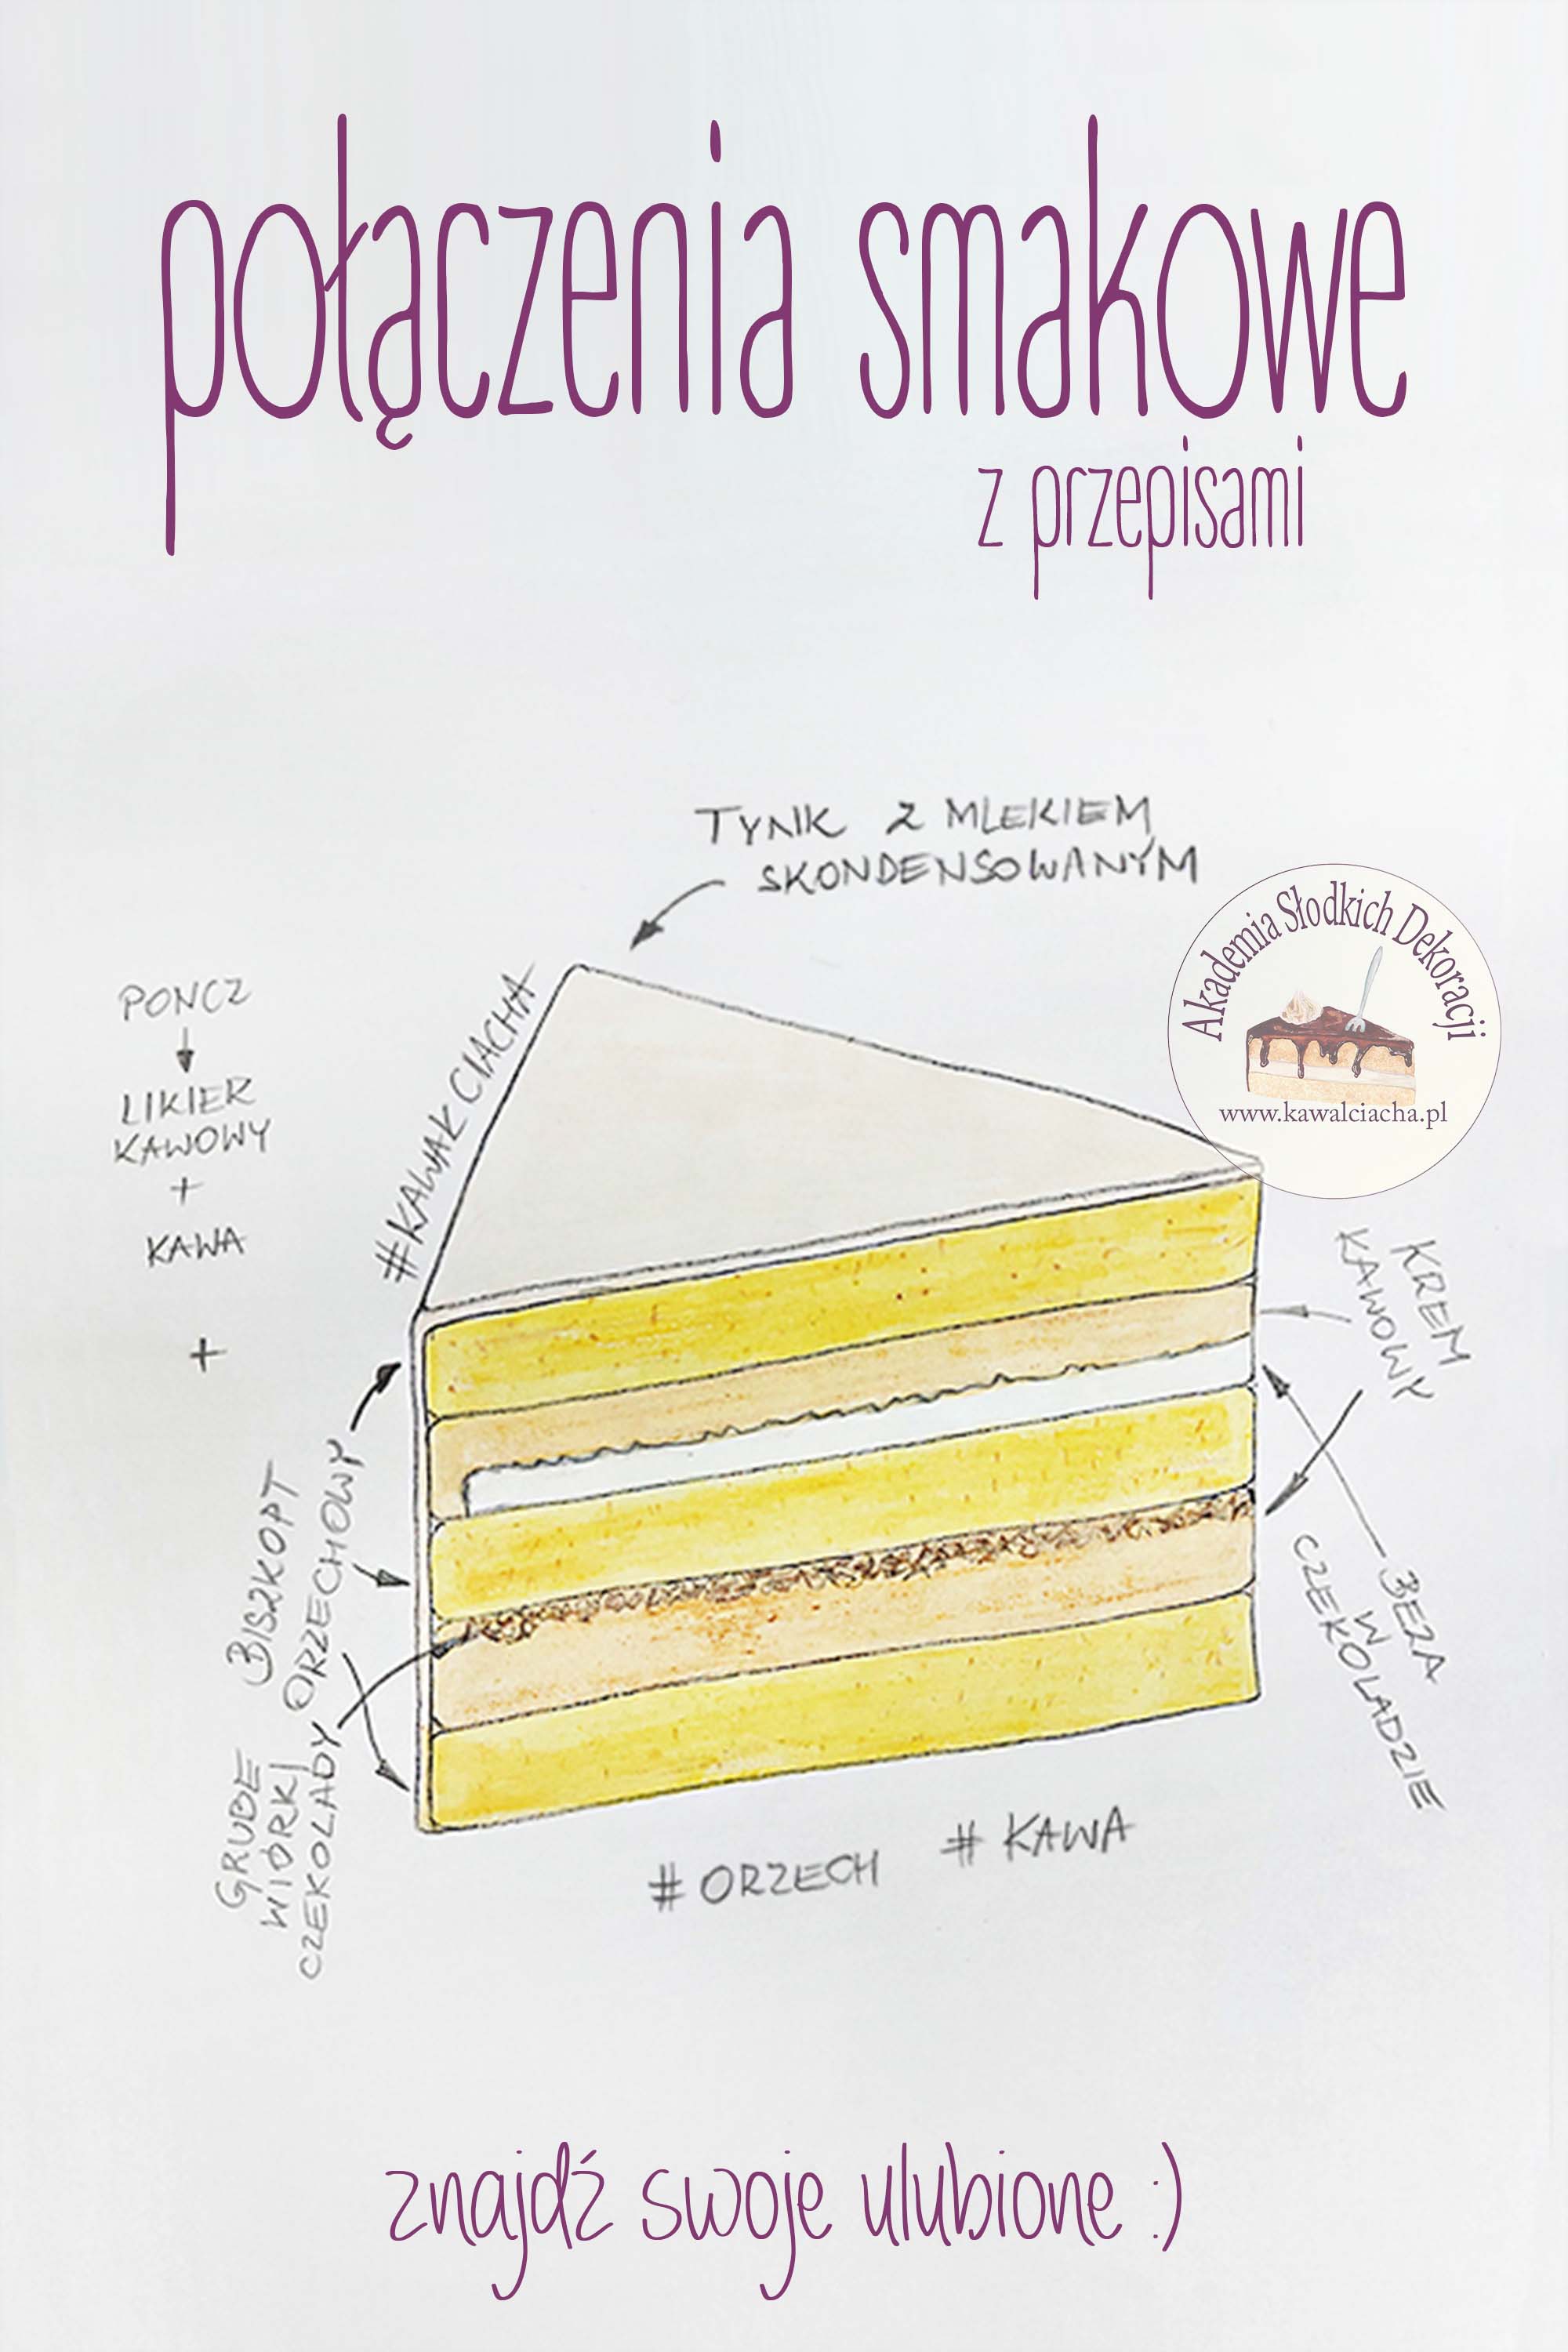 połączenia smakowe
z przepisami
TYNK Z MLEKIEM
SKONDENSOWANYM
Akademia Słodkich Dekoracji
www.kawalciacha.pl
PONCZ
LIKIER
KAWOWY
+
KAWA
+
#KAWAŁ CIACHA
KREM
KAWOWY
BISZKOPT
ORZECHOWY
BEZA
W
CZEKOLADZIE
GRUBE
WIÓRKI
CZEKOLADY
# ORZECH # KAWA
znajdź swoje ulubione :)